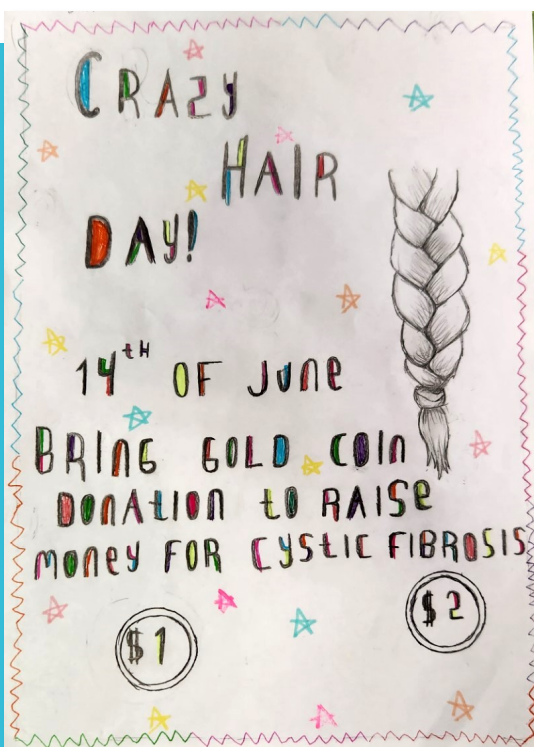 CRAZY
HAIR
DAY!
14tH OF June
BRING GOLD COIN
DONAtION to RAISe
money FOR CYStIC FIBROSIS
$1
$2